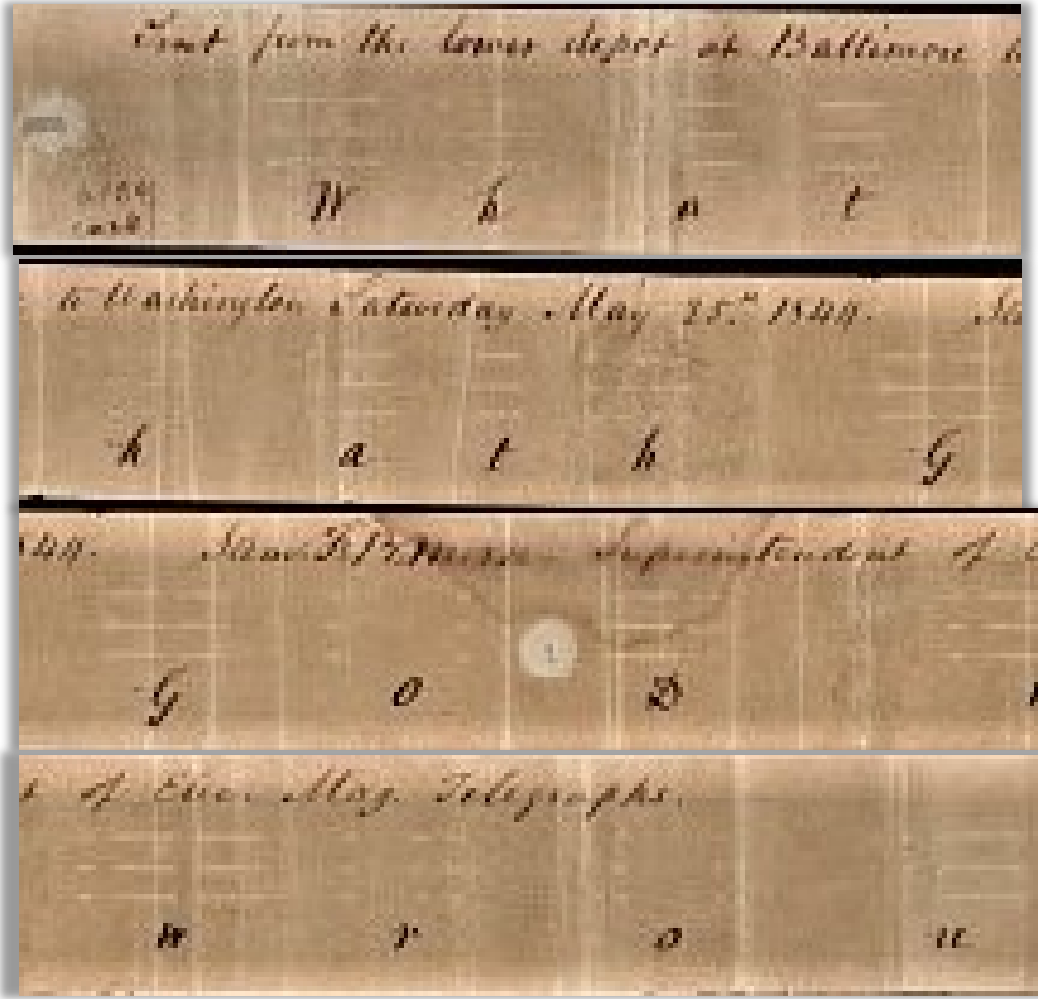 Sent from the lower depot at Baltimore to
W h a t
to Washington Saturday May 25th 1844.
h a t h G
44. Sam F. B. Morse Superintendent of
G O D
t of Elec. Mag. Telegraphs.
w r o u